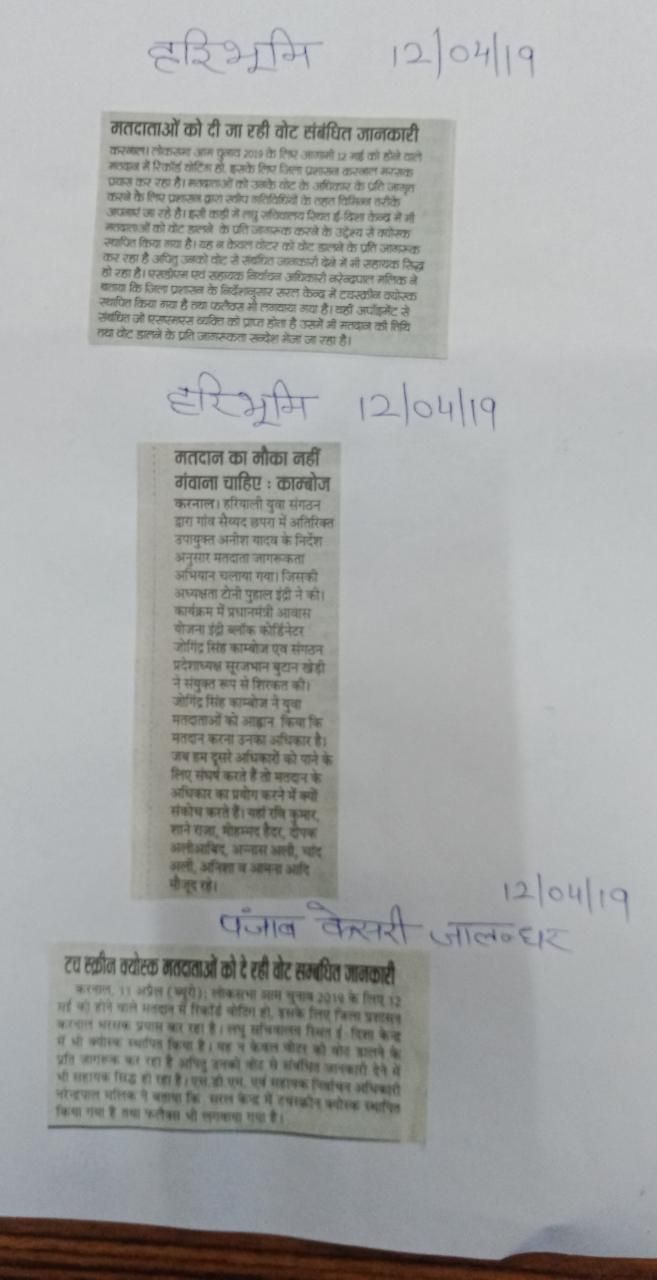 हरिभूमि 12/04/19
मतदाताओं को दी जा रही वोट संबंधित जानकारी
करनाल। लोकसभा आम चुनाव 2019 के लिए आगामी 12 मई को होने वाले
मतदान में रिकॉर्ड वोटिंग हो, इसके लिए जिला प्रशासन करनाल भरसक
प्रयास कर रहा है। मतदाताओं को उनके वोट के अधिकार के प्रति जागृत
करने के लिए प्रशासन द्वारा स्वीप गतिविधियों के तहत विभिन्न तरीके
अपनाएं जा रहे है। इसी कड़ी में लघु सचिवालय स्थित ई-दिशा केन्द्र में भी
मतदाताओं को वोट डालने के प्रति जागरूक करने के उद्देश्य से क्योस्क
स्थापित किया गया है। यह न केवल वोटर को वोट डालने के प्रति जागरूक
कर रहा है अपितु उनको वोट से संबंधित जानकारी देने में भी सहायक सिद्ध
हो रहा है। एसडीएम एवं सहायक निर्वाचन अधिकारी नरेन्द्रपाल मलिक ने
बताया कि जिला प्रशासन के निर्देशानुसार सरल केन्द्र में टचस्क्रीन क्योस्क
स्थापित किया गया है तथा फलैक्स भी लगवाया गया है। यहाँ अपॉइंमेंट से
संबंधित जो एसएमएस व्यक्ति को प्राप्त होता है उसमें भी मतदान की तिथि
तथा वोट डालने के प्रति जागरूकता सन्देश भेजा जा रहा है।
हरिभूमि 12/04/19
मतदान का मौका नहीं
गंवाना चाहिए : काम्बोज
करनाल। हरियाली युवा संगठन
द्वारा गांव सैय्यद छपरा में अतिरिक्त
उपायुक्त अनीश यादव के निर्देश
अनुसार मतदाता जागरूकता
अभियान चलाया गया। जिसकी
अध्यक्षता टोनी पुहाल इंद्री ने की।
कार्यक्रम में प्रधानमंत्री आवास
योजना इंद्री ब्लॉक कोर्डिनेटर
जोगिंद्र सिंह काम्बोज एव संगठन
प्रदेशाध्यक्ष सूरजभान बुटान खेड़ी
ने संयुक्त रूप से शिरकत की।
जोगिंद्र सिंह काम्बोज ने युवा
मतदाताओं को आह्वान किया कि
मतदान करना उनका अधिकार है।
जब हम दूसरे अधिकारों को पाने के
लिए संघर्ष करते हैं तो मतदान के
अधिकार का प्रयोग करने में क्यों
संकोच करते हैं। यहां रवि कुमार,
शाने राजा, मोहम्मद हैदर, दीपक
अलीआबिद, अन्नास अली, चांद
अली, अनिशा व आमना आदि
मौजूद रहे।
12/04/19
पंजाब केसरी जालन्धर
टच स्क्रीन क्योस्क मतदाताओं को दे रही वोट सम्बधित जानकारी
करनाल, 11 अप्रैल (ब्यूरो): लोकसभा आम चुनाव 2019 के लिए 12
मई को होने वाले मतदान में रिकॉर्ड वोटिंग हो, इसके लिए जिला प्रशासन
करनाल भरसक प्रयास कर रहा है। लघु सचिवालय स्थित ई-दिशा केन्द्र
में भी क्योस्क स्थापित किया है। यह न केवल वोटर को वोट डालने के
प्रति जागरूक कर रहा है अपितु उनको वोट से संबंधित जानकारी देने में
भी सहायक सिद्ध हो रहा है। एस.डी.एम. एवं सहायक निर्वाचन अधिकारी
नरेन्द्रपाल मलिक ने बताया कि सरल केन्द्र में टचस्क्रीन क्योस्क स्थापित
किया गया है तथा फलैक्स भी लगवाया गया है।